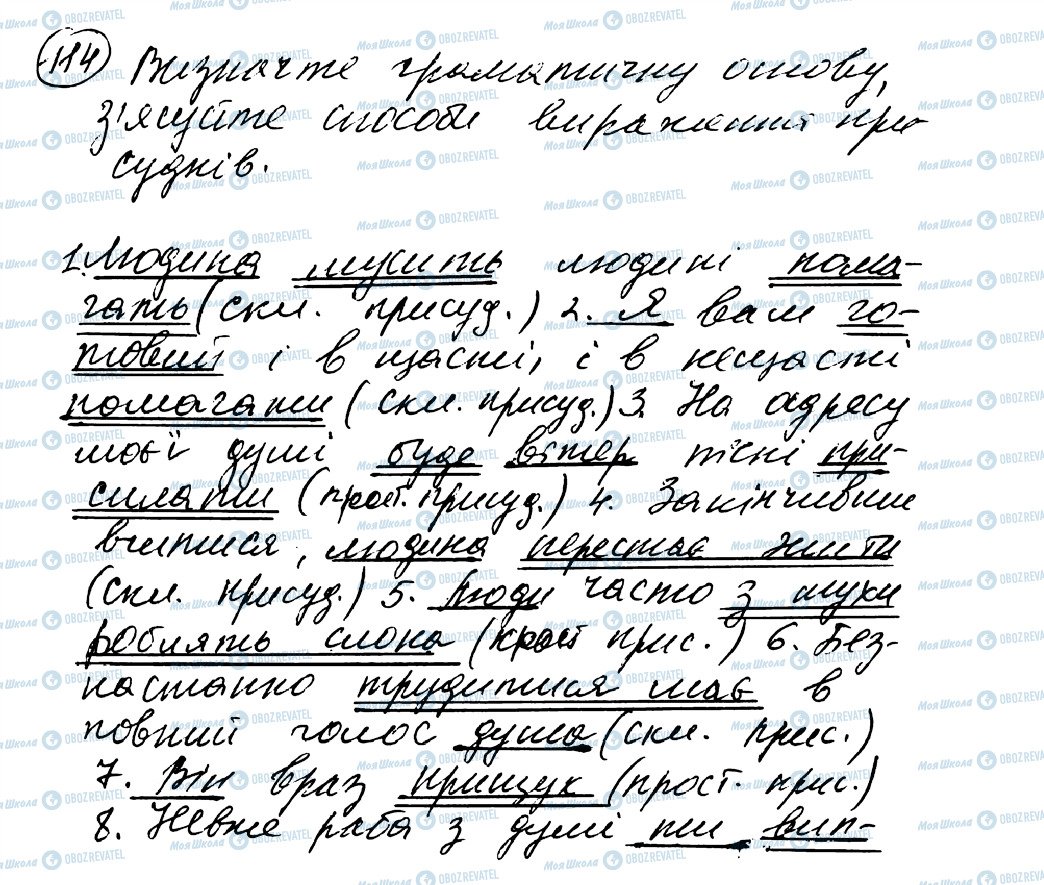 114 Визначте граматичну основу,
з'ясуйте способи вираження при-
судків.
1. Людина мусить людині пома-
гать (скл. присуд.) 2. Я вам го-
товий і в щасті, і в нещасті
помагати (скл. присуд.) 3. На адресу
моєї душі буде вітер пісні при-
силати (прост. присуд.) 4. Закінчивши
вчитися, людина перестає жити
(скл. присуд.) 5. Люди часто з мухи
роблять слона (прост прис.) 6. Без-
настанно трудитися має в
повний голос душа (скл. прис.)
7. Він враз прищук (прост. прис.)
8. Невже раба з душі ти вип-